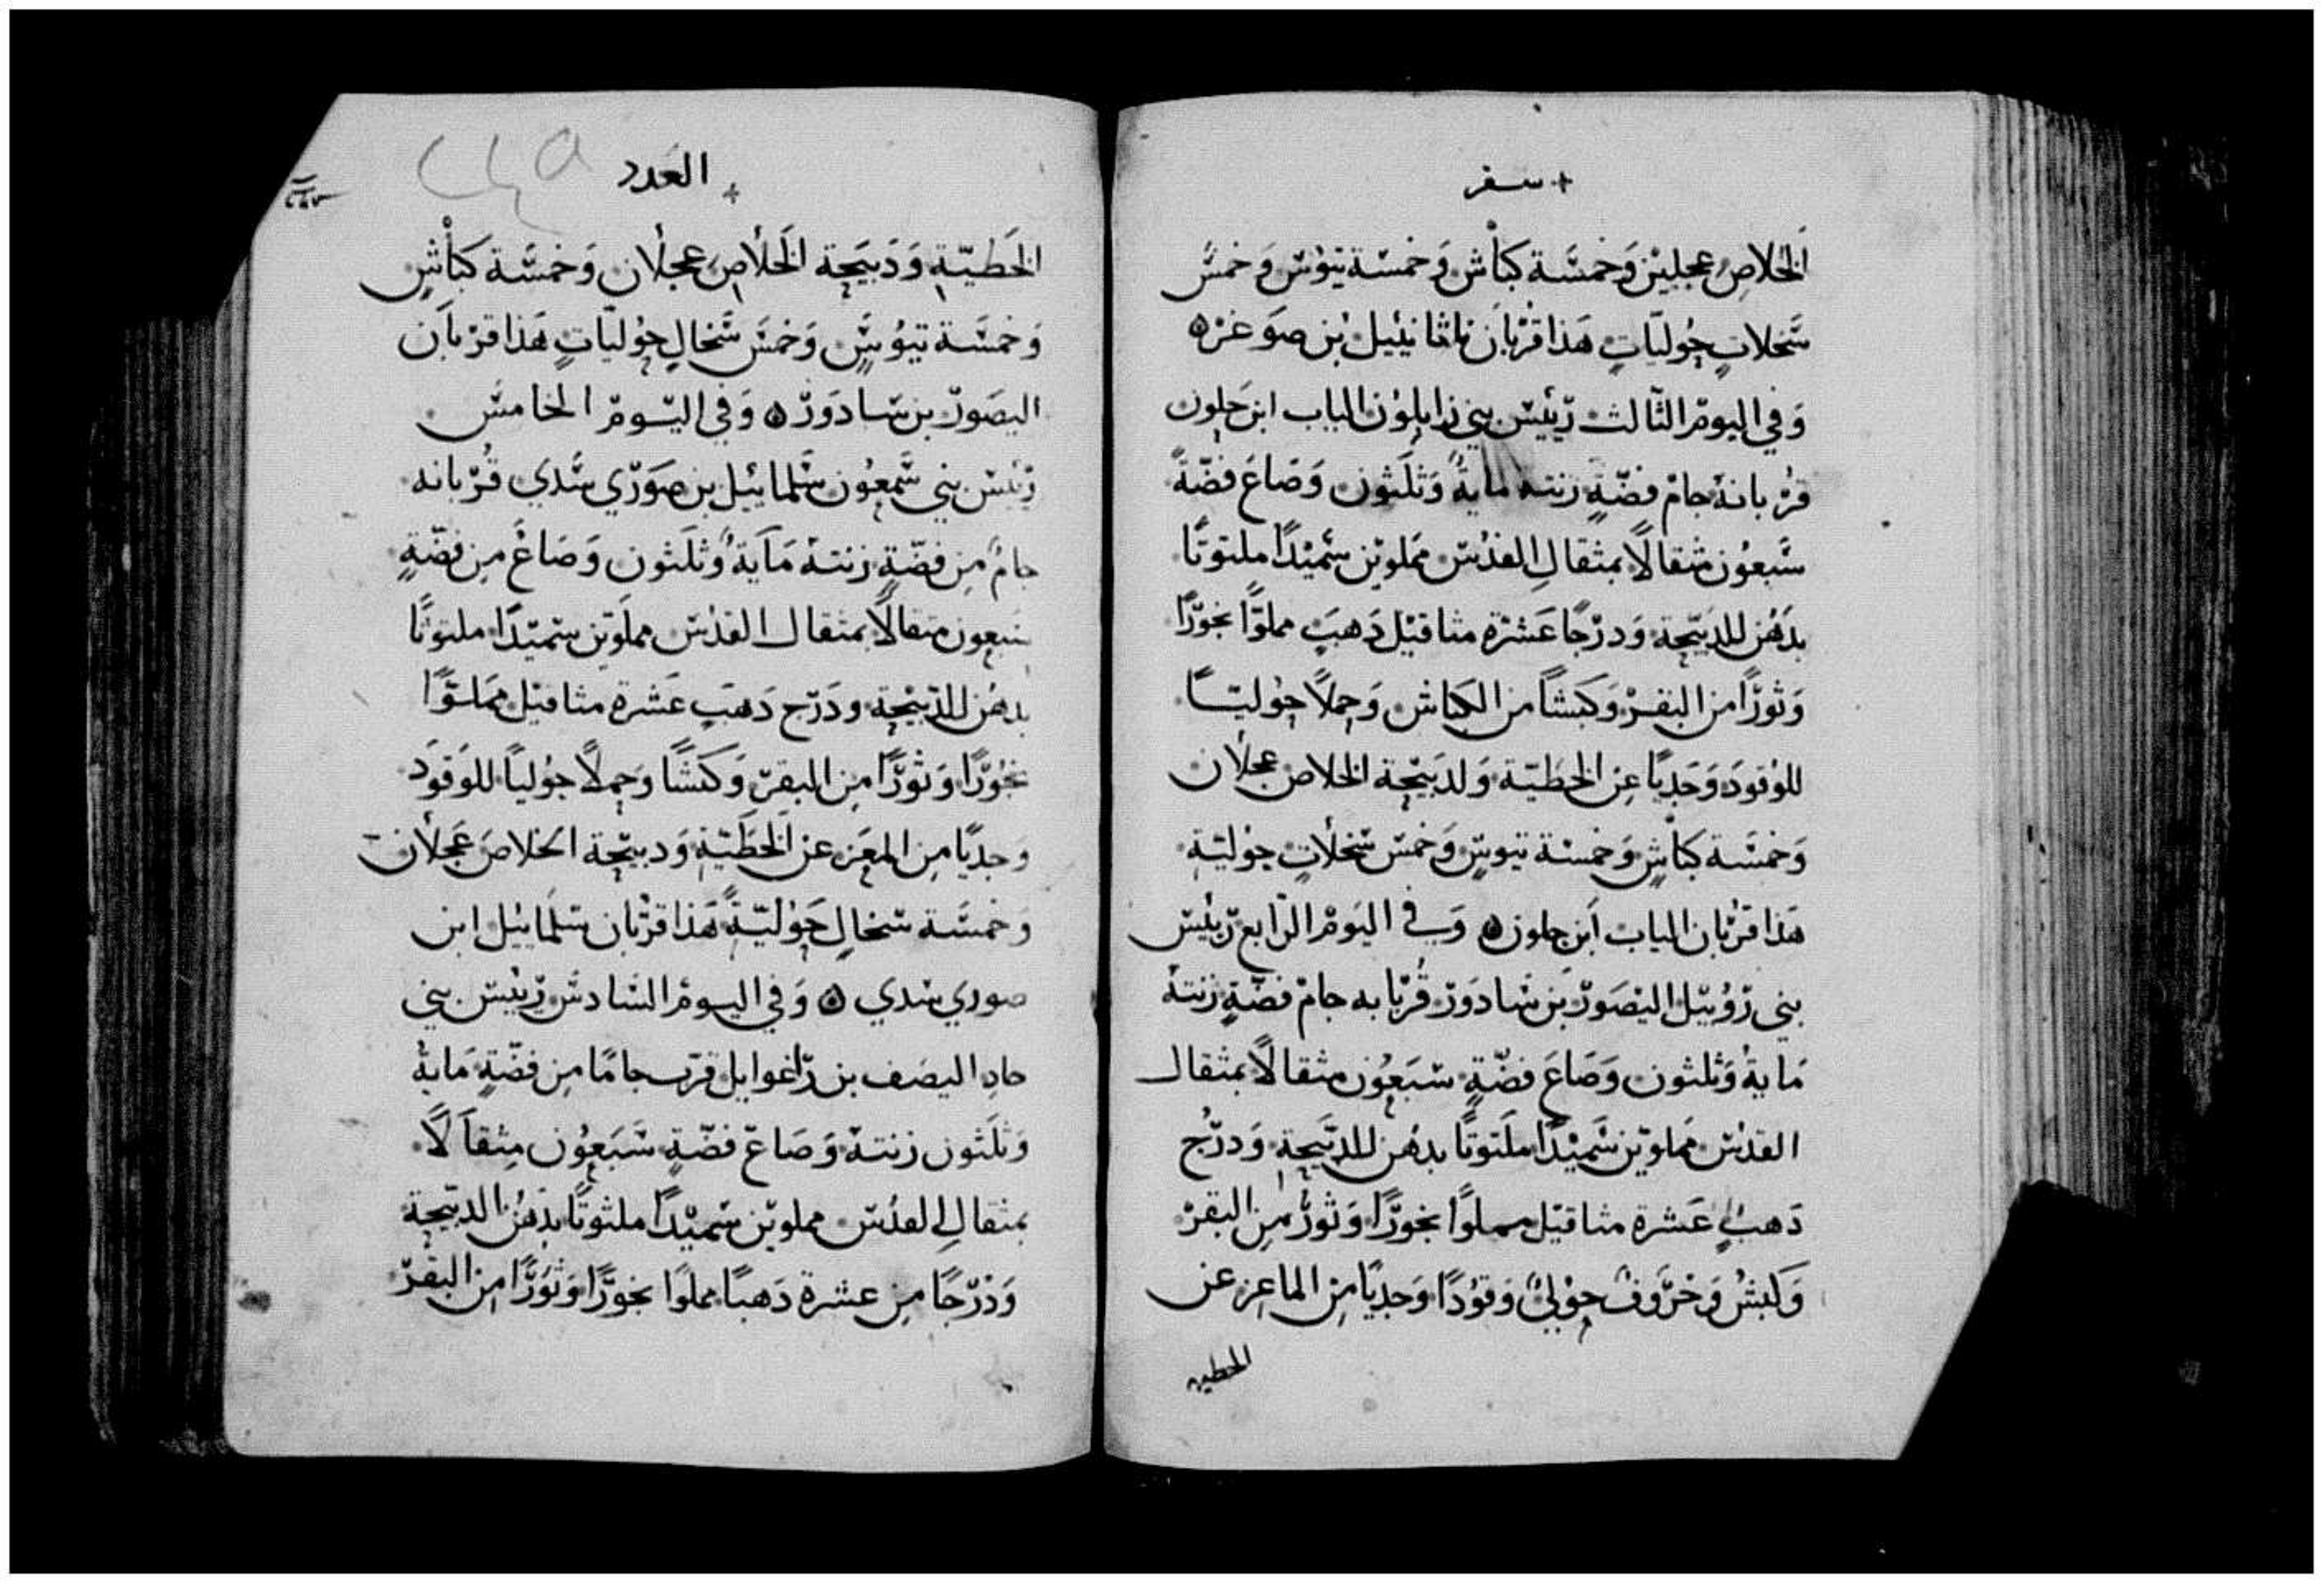 سفر
الخَلاصِ عجلين وَخمسَة كباش وَخمسة تيوس وَخمس
سَخلاتٍ حُوليّاتٍ هَذا قُربَان ناثانئيل بن صوغر
وَفي اليومِ الثالث رئيس بني زابلون الياب ابن حلون
قُربانهُ جامُ فضّةٍ زنته مايةً وَثلَثون وَصَاعَ فضّةً
سَبعُون مثقالاً بمثقالِ القدُس مملوين سَميْداً ملتوتاً
بدَهُن للدَبيحة وَدرْجاً عَشرة مثاقيْل دَهبٍ مملوّاً بخوراً
وَثوراً من البقر وَكَبشاً من الكباش وَحملاً حوليّاً
للوُقود وَجَدياً عِن الخطيّة وَلدَبيحة الخلاص عجلان
وَخمسَة كباشٍ وَخمسة تيوسٍ وَخمس سخلاتٍ حوليّة
هَذا قربان الياب ابن حلون وَفي اليَومِ الرابع رئيس
بني رؤبيل اليْصَور بن شادوَر قُربابه جامُ فضّةٍ زنتهُ
مَايةُ وَثلثون وَصَاعَ فضّةٍ سَبعُون مثقالاً بمثقال
القدُس مملوين سَميْداً ملتوتاً بدهُن للدبيحة وَدرْج
دَهبٍ عَشرة مثاقيل مملوا بخوراً وَثورُ من البقر
وَكبشُ وَخرَوفُ حوْليُ وَقوُداً وَجدياً مِن الماعِز عن
الخطيه
العَدد
٢٨٧
الخَطيّةِ وَدَبيَحة الخَلاصِ عجلان وَخمسَة كبَاشٍ
وَخمسَة تيوُسٍ وَخمسَ سَخالٍ حوُليّاتٍ هَذا قربَان
اليصَور بن شادوَر وَفي اليَومِ الخامس
رَئيس بني شَمعوُن شلمائيل بن صوَري شَدي قُربانه
جامُ مِن فضّةٍ زنتهُ مَايَةُ وُثلَثون وَصَاعُ مِن فضّةٍ
سَبعون مثقالاً بمثقال القدُس مملَوين سَميْداً ملتوتاً
بدهُن للدّبيحْة ودَرج دَهبٍ عَشرة مثاقيل مملوّاً
بخُوراً وَثوراً مِن البقر وَكبَشاً وَحملاً حوُلياً للوَقوَد
وَجدياً مِن المعَز عن الخَطَيّةِ وَدبيحّة الخلاصَ عَجلان
وَخمسَة سخالٍ حَوْليّةً هَذا قربْان شلمَائيل ابن
صوري شدي وَفي اليومِ السَادسَ رَئيس بني
جاد اليصَف بن رَاغوايل قرّب جامًا مِن فضّةٍ مَايةُ
وَثلَثون زنتهُ وَصَاعَ فضّةٍ سَبَعوُن مِثقاَلاً
بمثقالِ القدُس مملوين سَميْداً ملتوتاً بدَهُن الدبيّحة
وَدْرجاً مِن عشرة دَهباً مملوا بخوراً وَثوَراً من البقَر